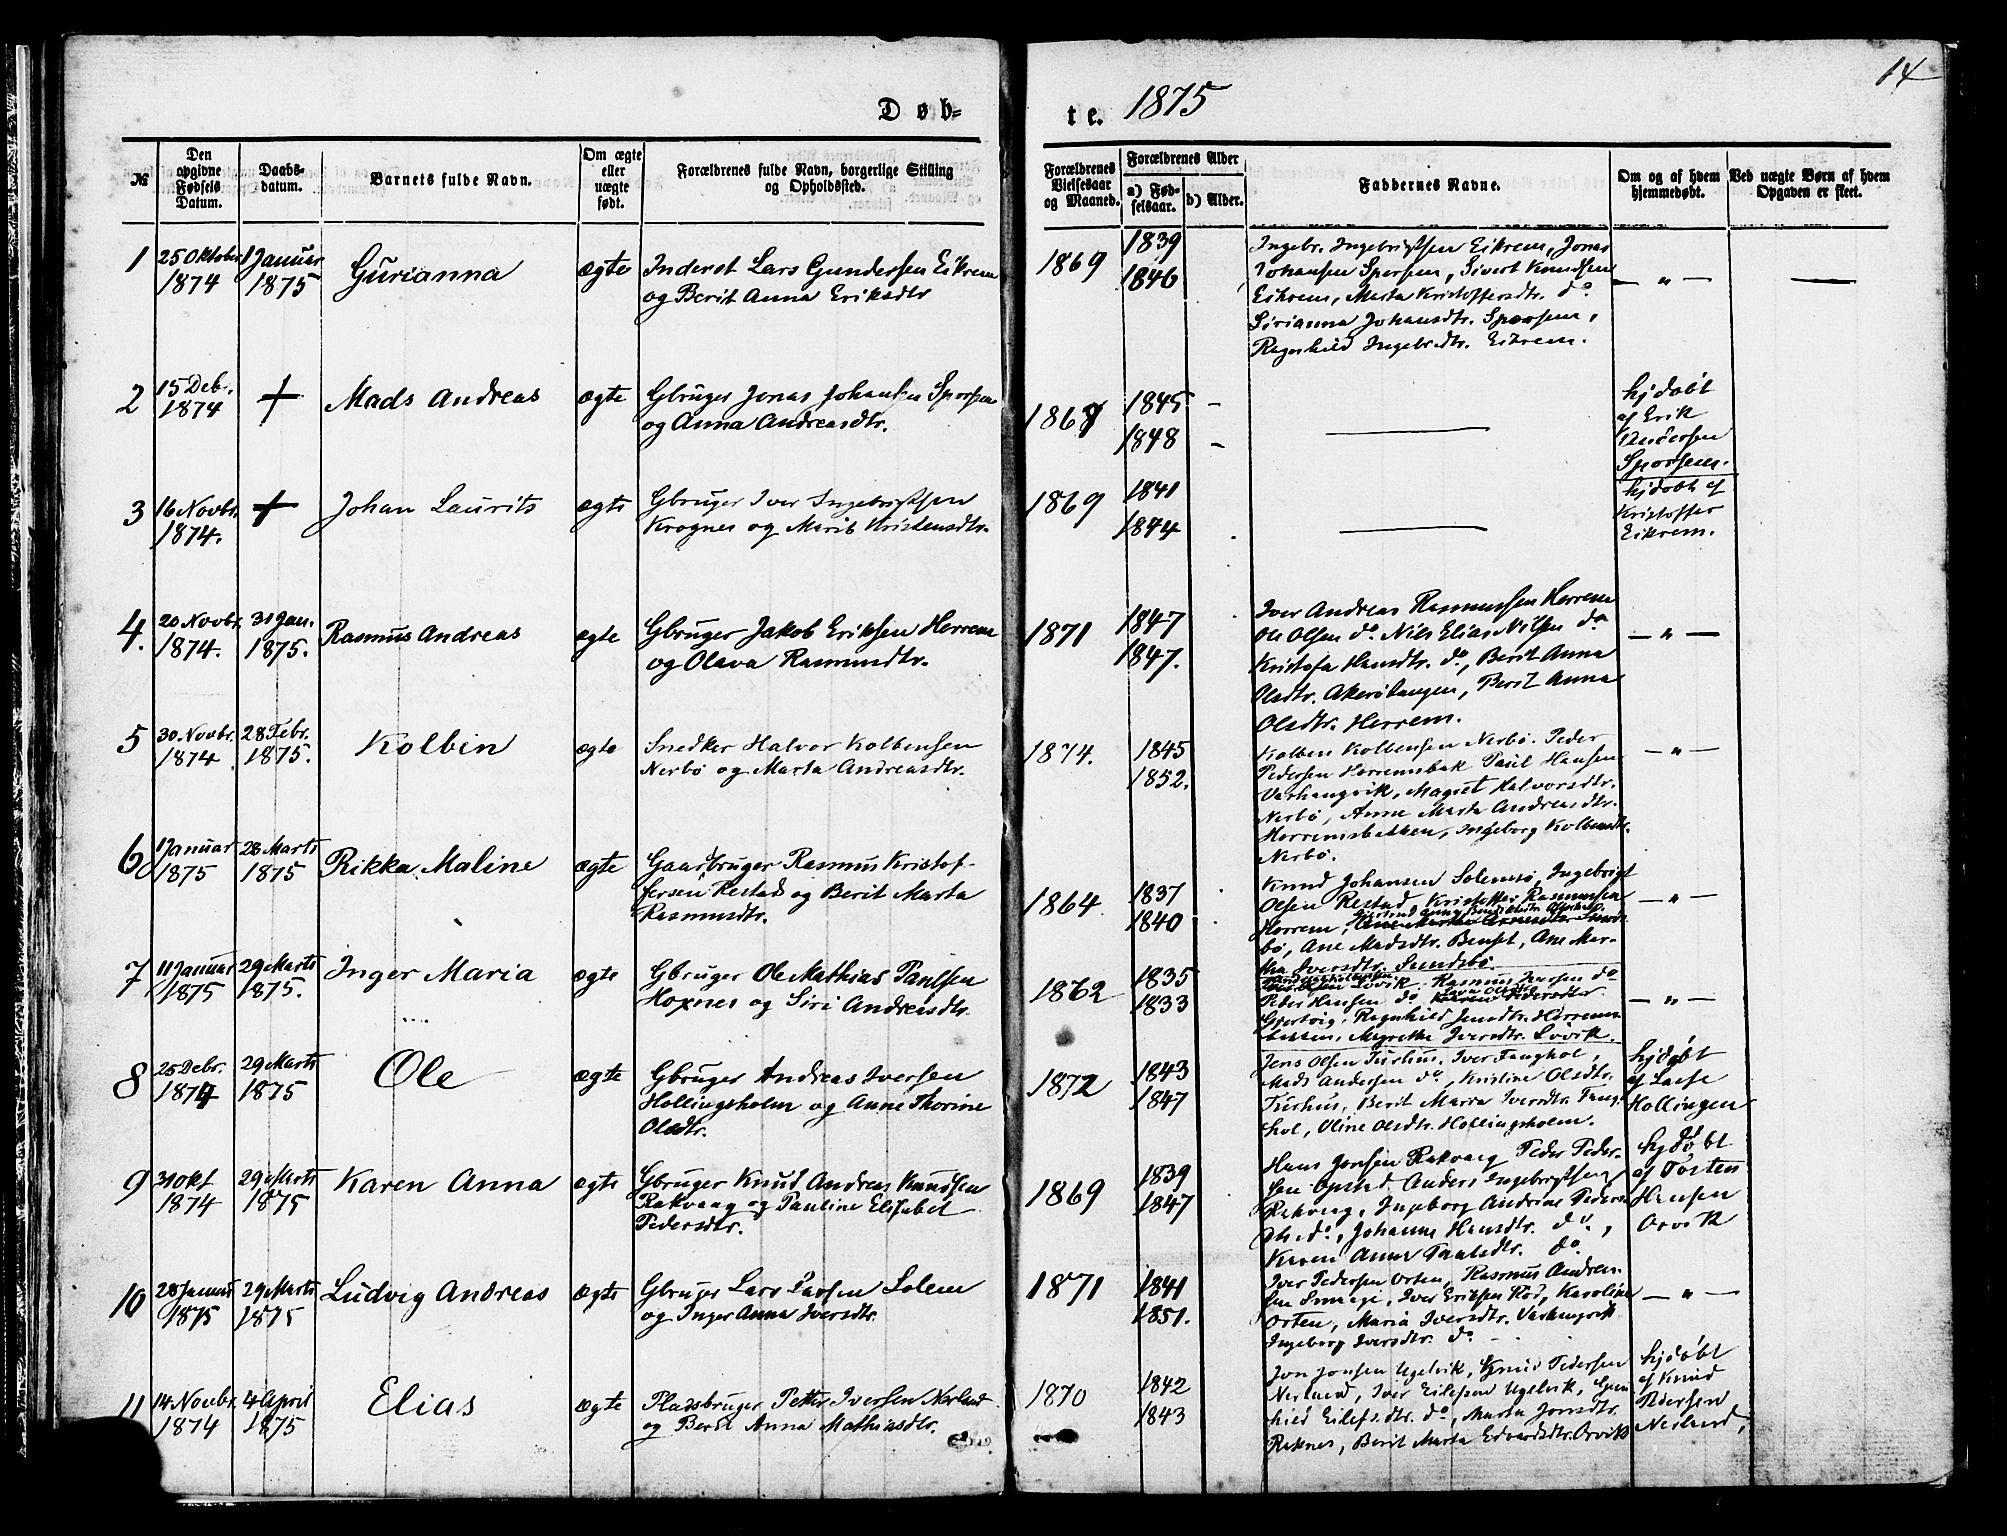 14
Døb-
te. 1875
№
Den opgivne Fødsels Datum.
Daabs-datum.
Barnets fulde Navn.
Om ægte eller uægte født.
Forældrenes fulde Navn, borgerlige Stilling og Opholdssted.
Forældrenes Vielsesaar og Maaned.
Forældrenes Alder
a) Fød-selsaar.
b) Alder.
Faddernes Navne.
Om og af hvem hjemmedøbt.
Ved uægte Børn af hvem Opgaven er skeet.
1
25 Oktober
1874
1 Januar
1875
Gurianna
ægte
Inderst Lars Gundersen Eikrem
og Berit Anna Eriksdtr
1869
1839
1846
Ingebr. Ingebrigtsen Eikrem, Jonas
Johansen Sporsem, Sivert Knudsen
Eikrem, Marta Kristoffersdtr. do
Sirianna Johansdtr. Sporsem,
Ragnhild Ingebrdtr. Eikrem.
— " —
—
2
15 Debr.
1874
+
Mads Andreas
ægte
Gbruger Jonas Johansen Sporsem
og Anna Andreasdtr.
1845 -
1848 -
—
hjdøbt
af Erik
Andersen
Sporsem.
3
16 Novbr.
1874.
+
Johan Laurits
ægte
Gbruger Iver Ingebrigtsen
Krognes og Marit Kristensdtr.
1869
1841
1844
—
hjdøbt af
Kristoffer
Eikrem.
4.
20 Novbr.
1874.
31 Jan.
1875.
Rasmus Andreas
ægte
Gbruger Jakob Eriksen Herrem
og Olava Rasmusdtr.
1871
1847
1847.
Iver Andreas Rasmussen Herrem
Ole Olsen do. Nils Elias Nilsen do
Kristofa Hansdtr. do, Berit Anna
Olsdtr. Akerøtangen, Berit Anna
Olsdtr. Herrem.
— " —
5
30 Novbr.
1874
28 Febr.
1875.
Kolbin
ægte
Snedker Halvor Kolbensen
Nerbø og Marta Andreasdtr.
1874.
1845
1852.
Kolben Kolbensen Nerbø. Peder
Pedersen Herremsbak Paul Hansen
Varhaugvik, Magret Halvorsdtr.
Nerbø, Anne Marta Andreasdtr.
Herremsbakken, Ingeborg Kolbensdtr.
Nerbø.
— " —
6
1 Januar
1875
28 Marts
1875
Rikka Maline
ægte
Gaardbruger Rasmus Kristof-
fersen Restad og Berit Marta
Rasmusdtr.
1864
1837
1840
Knud Johansen Solemsø, Ingebrigt
Olsen Restad, Kristoffer Rasmussen
Herrem,
bø, Ane Madsdtr. Benset, Ane Mar-
tha Iversdtr. Sundsbø.
— " —
7
11 Januar
1875
29 Marts
1875.
Inger Maria
ægte
Gbruger Ole Mathias Paulsen
Hoxnes og Siri Andreasdtr.
1862
1835
1833
Løvik. Rasmus Iversen do
Peder Hansen do
Gjertvig, Ragnhild Jensdtr. Herrems-
bakken, Magrethe Iversdtr. Løvik.
— " —
8
25 Debr.
1874
29 Marts
1875
Ole
ægte
Gbruger Andreas Iversen
Hollingsholm og Anne Thorine
Olsdtr.
1872
1843
1847
Jens Olsen Turhus. Iver Tanghol,
Mads Andersen do, Kristine Olsdtr.
Turhus, Berit Marta Iversdtr. Tang-
hol, Oline Olsdtr. Hollingsholm.
hjdøbt
af Lasse
Hollingen
9
31 Okt
1874
29 Marts
1875
Karen Anna
ægte
Gbruger Knud Andreas Knudsen
Rakvaag og Pauline Elisabet
Pedersdtr.
1869
1839
1847
Hans Jensen Rakvaag Peder Peder-
sen Opstad Anders Ingebrigtsen
Rakvaag, Ingeborg Andrine
do, Johanna Hansdtr. do,
Karen Anne Paalsdtr. do
hjdøbt
af Torsten
Hansen
Orvik
10
28 Januar
1875
29 Marts
1875
Ludvig Andreas
ægte
Gbruger Lars Larsen Solem
og Inger Anna Iversdtr.
1871
1841
1851.
Iver Pedersen Orten, Rasmus Andrea-
sen Smaage, Iver Eriksen Rød, Karoline
Orten, Maria Iversdtr. Varhaugvik
Ingeborg Iversdtr. do
— " —
11
14 Novbr.
1874
4 April
1875
Elias
ægte
Pladsbruger Petter Iversen Nerland
og Berit Anna Mathiasdtr.
1870
1842
1843
Jon Jonsen Ugelvik, Knud Pedersen
Nerland, Iver Eilefsen Ugelvik, Gun-
hild Eilefsdtr. do, Marta Jonsdtr.
Raknes, Berit Marta Edvardsdtr. Orvik
hjdøbt
af Knud
Pedersen
Nerland,